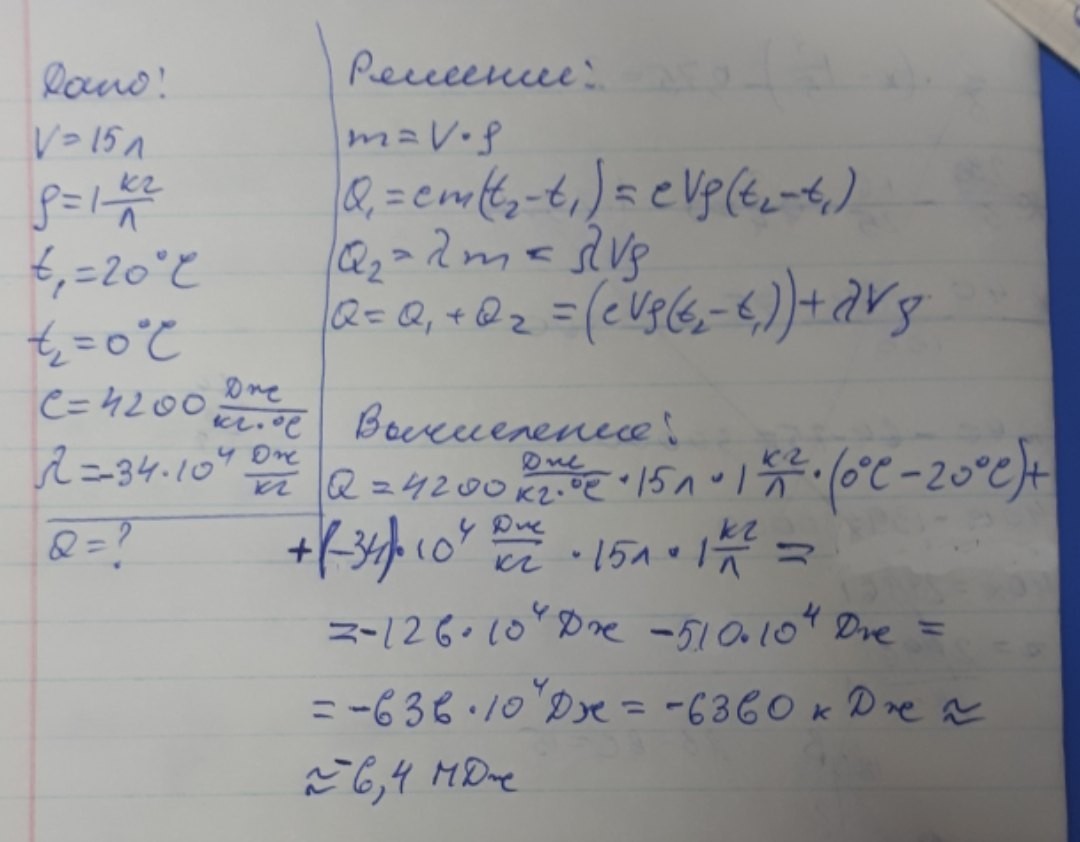 Дано:
V=15л
ρ=1 кг/л
t₁=20°C
t₂=0°C
c=4200 Дж/кг·°C
λ=-34·10⁴ Дж/кг
Q=?
Решение:
m=V·ρ
Q₁=cm(t₂-t₁)=cVρ(t₂-t₁)
Q₂=λm=λVρ
Q=Q₁+Q₂=(cVρ(t₂-t₁))+λVρ
Вычисление:
Q=4200 Дж/кг·°C·15л·1 кг/л·(0°C-20°C)+
+(-34)·10⁴ Дж/кг·15л·1 кг/л=
=-126·10⁴ Дж -510·10⁴ Дж=
=-636·10⁴ Дж=-6360 кДж≈
≈-6,4 МДж